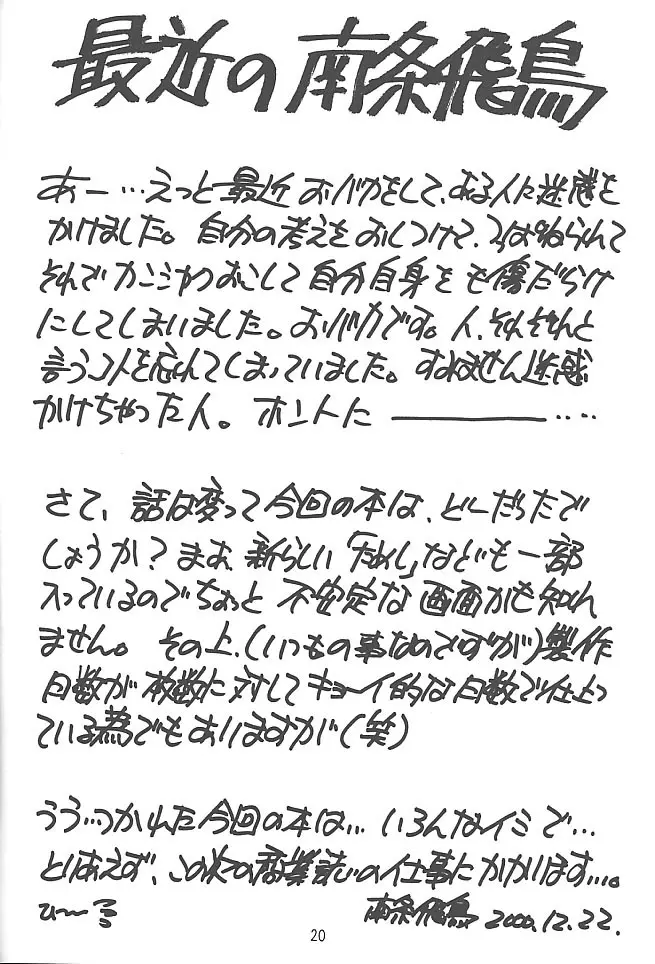 最近の南条飛鳥
あー…えっと最近おバカをして、ある人に迷惑を
かけました。自分の考えをおしつけて、つっぱねられて
それでカンシャクおこして自分自身をも傷だらけ
にしてしまいました。おバカです。人、それぞれと
言うコトを忘れてしまっていました。すみません迷惑
かけちゃった人。ホントに―――――‥‥
さて、話は変って今回の本は、どーだったで
しょうか?まあ、新らしい「ためし」なども一部
入っているのでちょっと不安定な画面かも知れ
ません。その上、(いつもの事なのですが)製作
日数が枚数に対してキョーイ的な日数で仕上っ
ている為でもありますが(笑)
うう…つかれた今回の本は…いろんなイミで…
とりあえず、この次の商業誌の仕事にかかります…。
ひ〜る 南条飛鳥 2000.12.22.
20